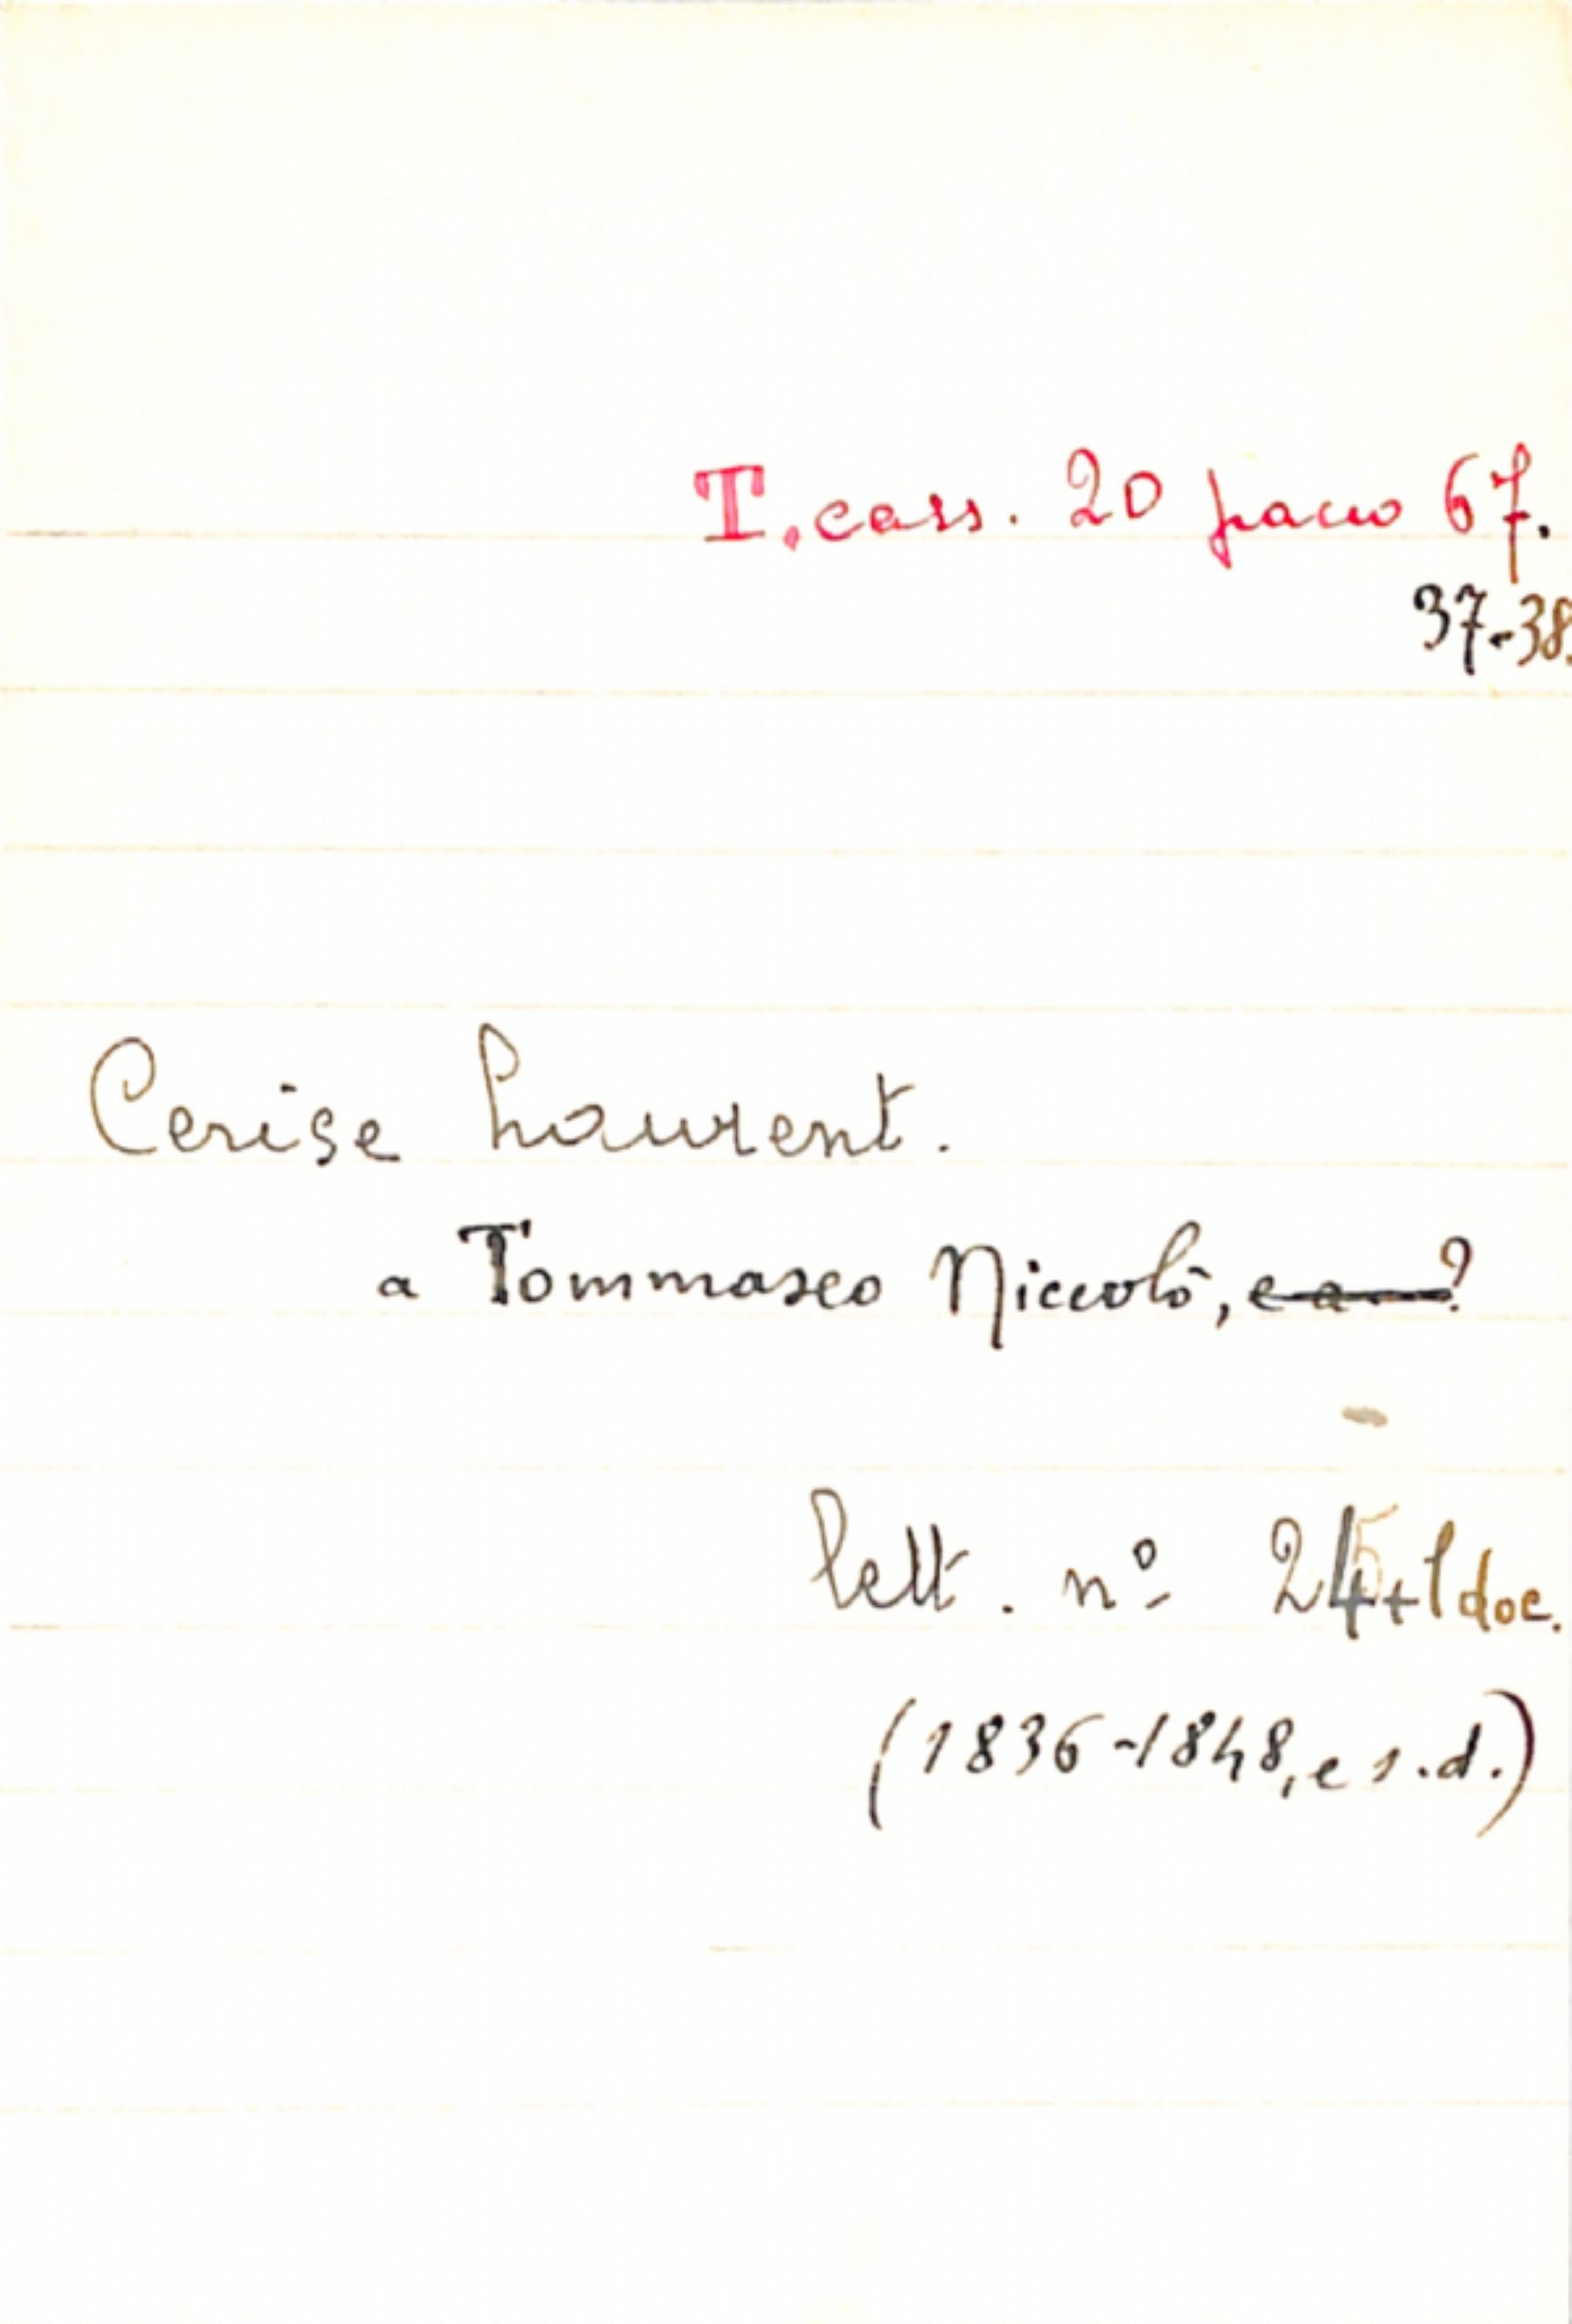 T. cass. 20 pacco 67.
37-38.
Cerise Laurent.
a Tommaseo Niccolò, e a ?
lett. nº 24+1 doc.
(1836-1848, e s.d.)